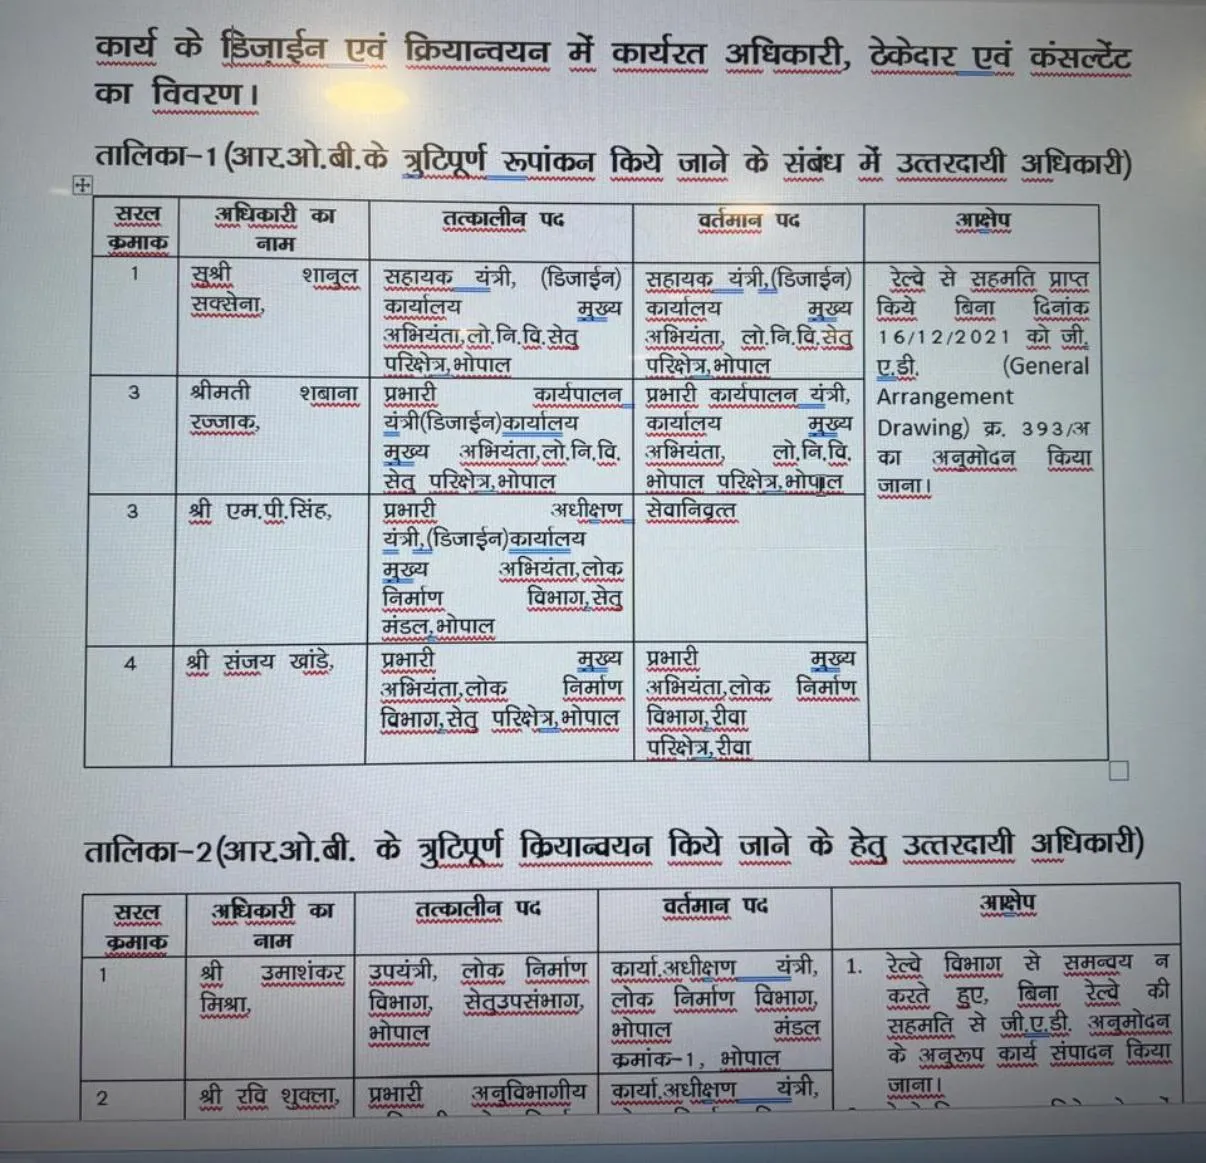 कार्य के डिज़ाईन एवं क्रियान्वयन में कार्यरत अधिकारी, ठेकेदार एवं कंसल्टेंट
का विवरण।
तालिका-1(आर.ओ.बी.के त्रुटिपूर्ण रूपांकन किये जाने के संबंध में उत्तरदायी अधिकारी)
सरल
क्रमाक
अधिकारी का
नाम
तत्कालीन पद
वर्तमान पद
आक्षेप
1
सुश्री शानुल
सक्सेना,
सहायक यंत्री, (डिजाईन)
कार्यालय मुख्य
अभियंता,लो.नि.वि.सेतु
परिक्षेत्र,भोपाल
सहायक यंत्री,(डिजाईन)
कार्यालय मुख्य
अभियंता, लो.नि.वि.सेतु
परिक्षेत्र,भोपाल
रेल्वे से सहमति प्राप्त
किये बिना दिनांक
16/12/2021 को जी.
ए.डी. (General
Arrangement
Drawing) क्र. 393/अ
का अनुमोदन किया
जाना।
3
श्रीमती शबाना
रज्जाक,
प्रभारी कार्यपालन
यंत्री(डिजाईन)कार्यालय
मुख्य अभियंता,लो.नि.वि.
सेतु परिक्षेत्र,भोपाल
प्रभारी कार्यपालन यंत्री,
कार्यालय मुख्य
अभियंता, लो.नि.वि.
भोपाल परिक्षेत्र,भोपाल
3
श्री एम.पी.सिंह,
प्रभारी अधीक्षण
यंत्री,(डिजाईन)कार्यालय
मुख्य अभियंता,लोक
निर्माण विभाग,सेतु
मंडल,भोपाल
सेवानिवृत्त
4
श्री संजय खांडे,
प्रभारी मुख्य
अभियंता,लोक निर्माण
विभाग,सेतु परिक्षेत्र,भोपाल
प्रभारी मुख्य
अभियंता,लोक निर्माण
विभाग,रीवा
परिक्षेत्र,रीवा
तालिका-2(आर.ओ.बी. के त्रुटिपूर्ण क्रियान्वयन किये जाने के हेतु उत्तरदायी अधिकारी)
सरल
क्रमाक
अधिकारी का
नाम
तत्कालीन पद
वर्तमान पद
आक्षेप
1
श्री उमाशंकर
मिश्रा,
उपयंत्री, लोक निर्माण
विभाग, सेतुउपसंभाग,
भोपाल
कार्या.अधीक्षण यंत्री,
लोक निर्माण विभाग,
भोपाल मंडल
क्रमांक-1, भोपाल
1. रेल्वे विभाग से समन्वय न
करते हुए, बिना रेल्वे की
सहमति से जी.ए.डी. अनुमोदन
के अनुरूप कार्य संपादन किया
जाना।
2
श्री रवि शुक्ला,
प्रभारी अनुविभागीय
कार्या.अधीक्षण यंत्री,